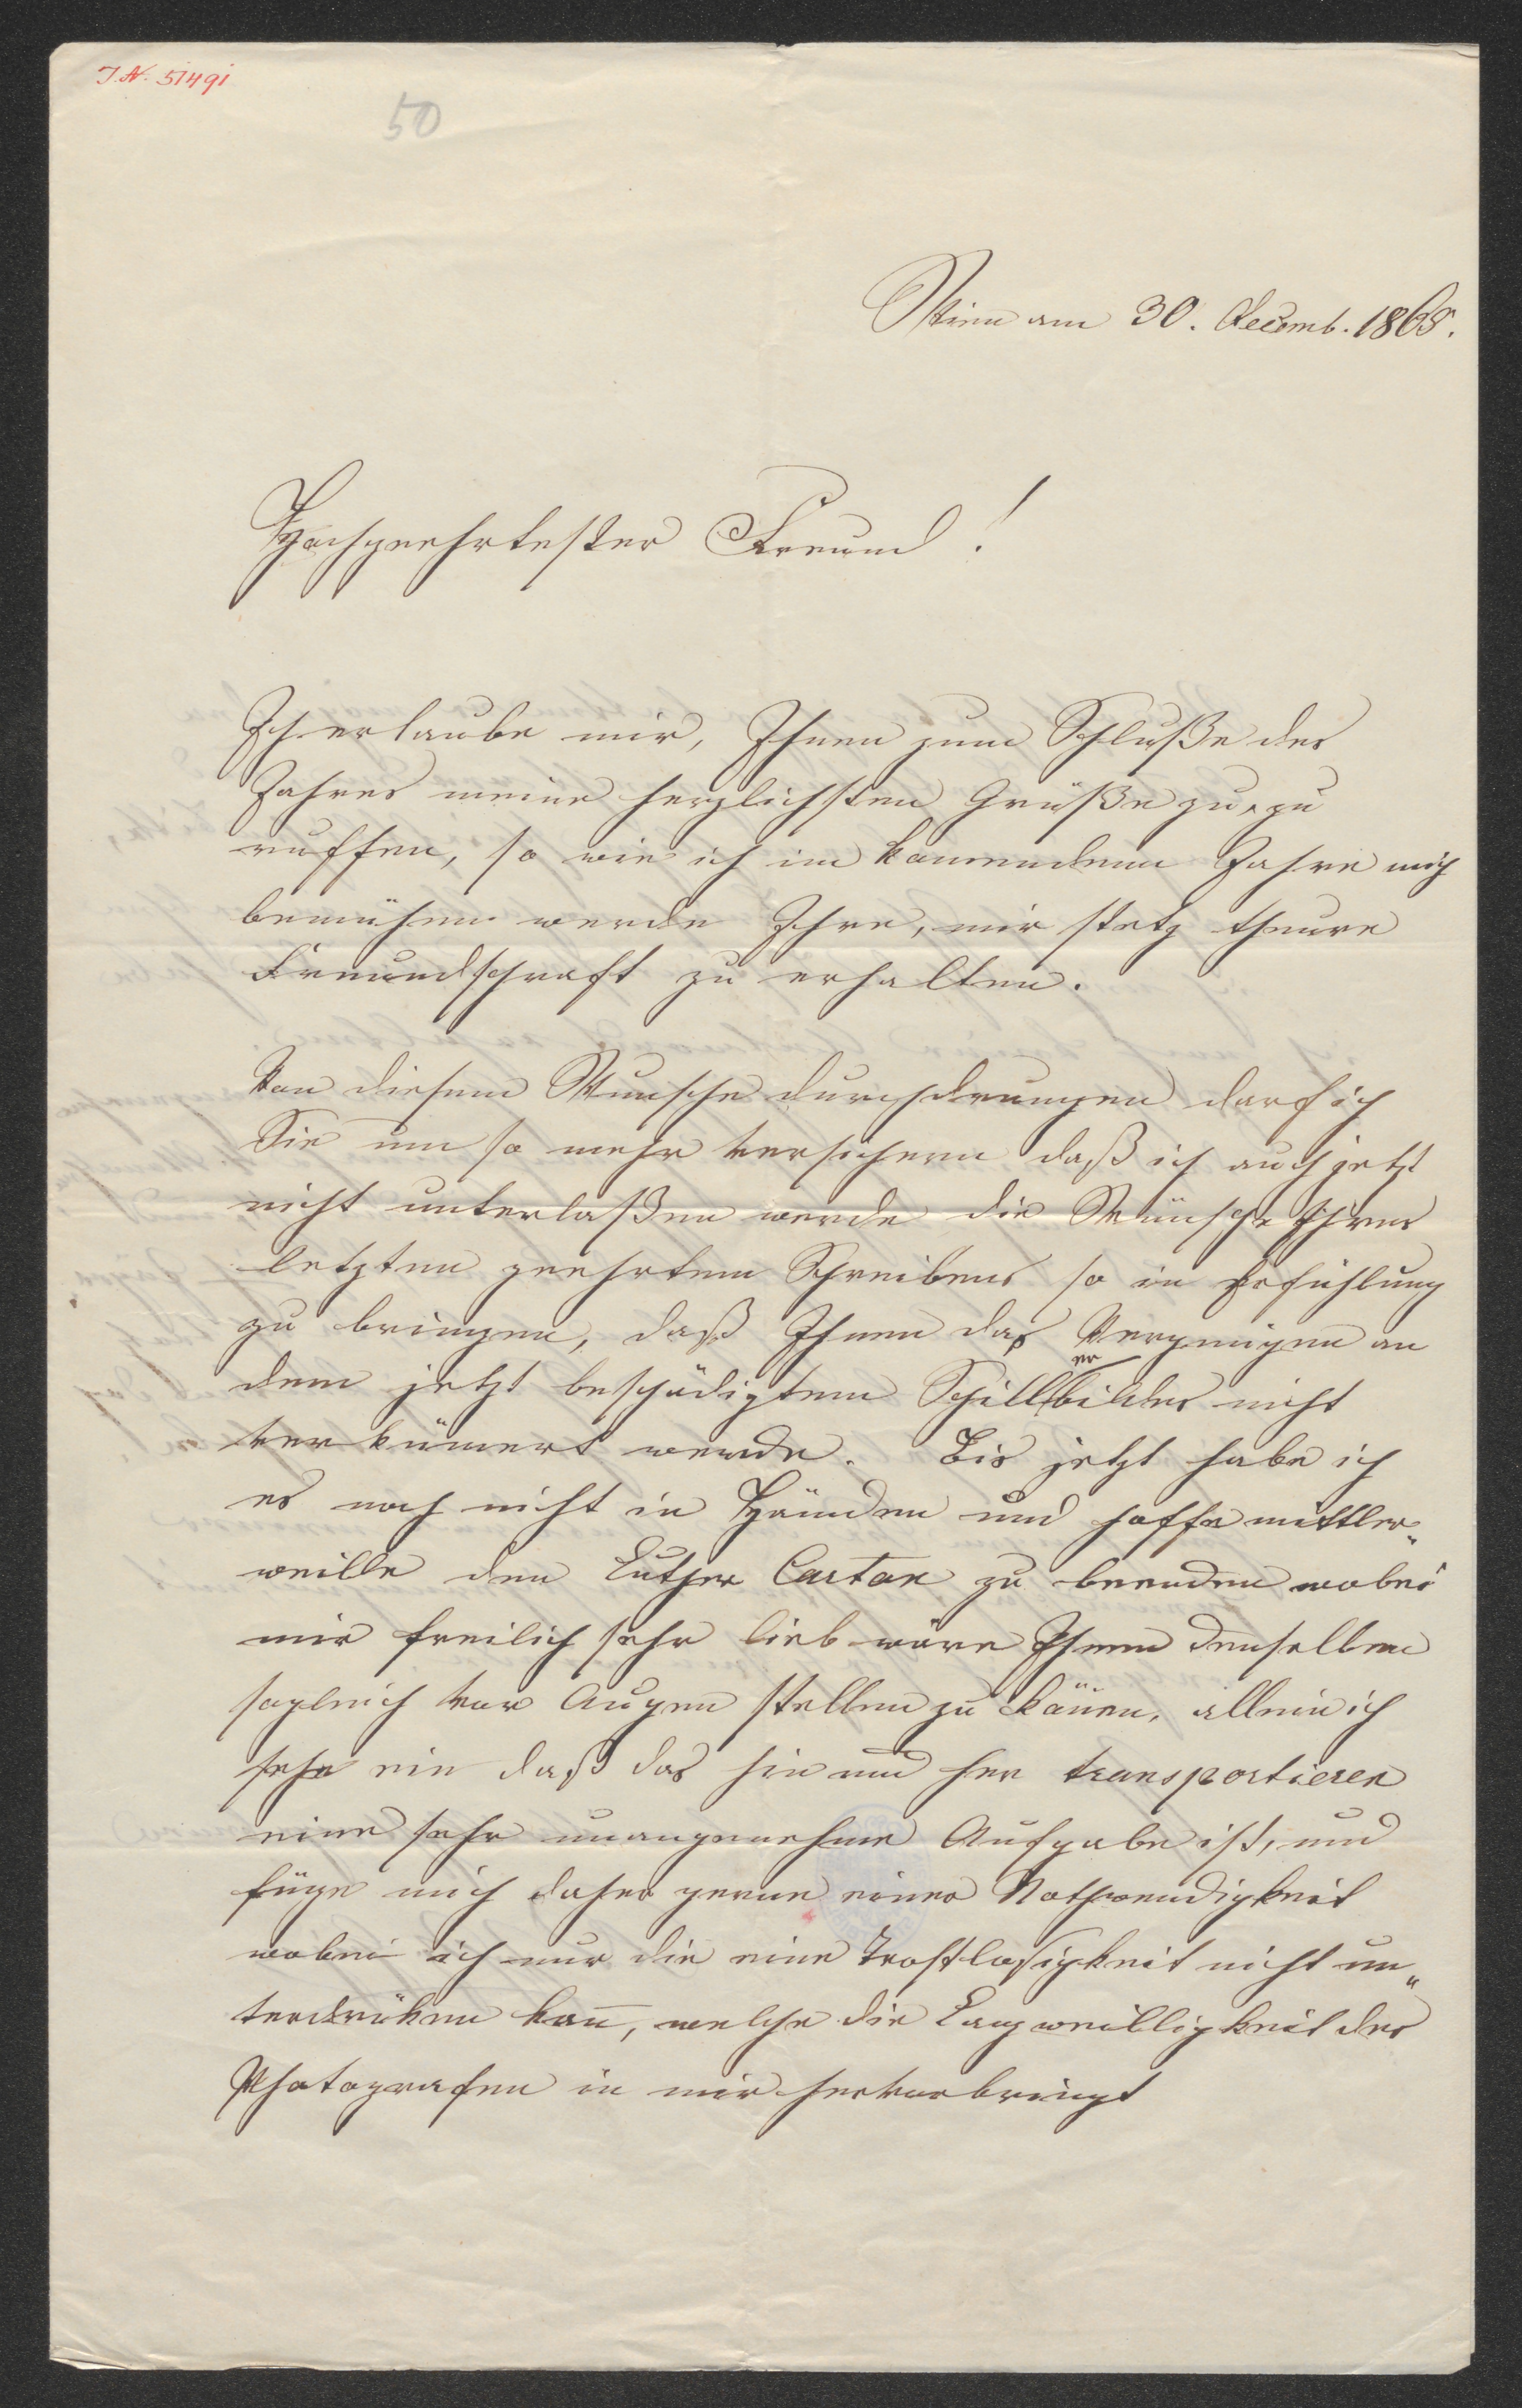 J.N. 51491
50
Wien am 30. Decemb. 1865.
Hochgeehrtester Freund!
Ich erlaube mir, Ihnen zum Schluße des
Jahres meine herzlichsten Grüße zu, zu
ruffen, so wie ich im kom̄enden Jahre mich
bemühen werde Ihre, mir stetz theure
Freundschaft zu erhalten.
Von diesem Wunsche durchdrungen darf ich
Sie um so mehr versichern daß ich auch jetzt
nicht unterlaßen werde die Wünsche Ihres
letzten geehrtem Schreibens so in Erfühlung
zu bringen, daß Ihnen das Vergnügen an
dem jetzt beschädigtem Schillerbildes nicht
verküm̄ert werde. Bis jetzt habe ich
es noch nicht in Händen und hoffe mittler„
weille den Luther Carton zu beenden wobei
mir freilich sehr lieb wäre Ihnen denselben
sogleich vor Augen stellen zu kön̄en, allein ich
sehe ein daß das hin und her transportieren
eine sehr unangenehme Aufgabe ist, und
füge mich daher gerne einer Nothwendigkeit
wobei ich nur die eine Trostlosigkeit nicht un„
terdrüken kan̄, welche die Langweilligkeit des
Photografen in mir hervorbringt